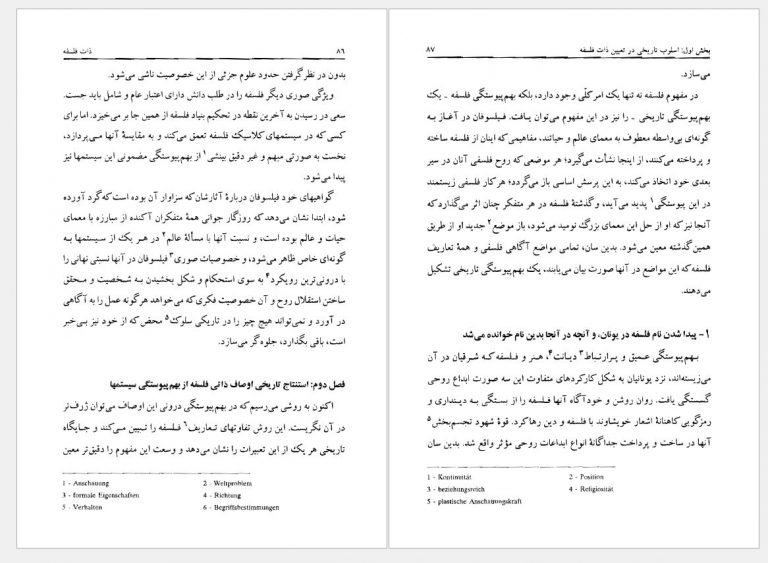 ۸۶ ذات فلسفه
بدون در نظر گرفتن حدود علوم جزئی از این خصوصیت ناشی می‌شود.
ویژگی صوری دیگر فلسفه را در طلب دانش دارای اعتبار عام و شامل باید جست.
سعی در رسیدن به آخرین نقطه در تحکیم بنیاد فلسفه از همین جا بر میخیزد. اما برای
کسی که در سیستمهای کلاسیک فلسفه تعمق می‌کند و به مقایسهٔ آنها مـی‌پردازد،
نخست به صورتی مبهم و غیر دقیق بینشی۱ از بهم‌پیوستگی مضمونی این سیستمها نیز
پیدا می‌شود.
گواهیهای خود فیلسوفان دربارهٔ آثارشان که سزاوار آن بوده است که گرد آورده
شود، ابتدا نشان می‌دهد که روزگار جوانی همهٔ متفکران آکنده از مبارزه با معمای
حیات و عالم بوده است، و نسبت آنها با مسألهٔ عالم۲ در هـر یک از سـیستمها بـه
گونه‌ای خاص ظاهر می‌شود، و خصوصیات صوری۳ فیلسوفان در آنها نسبتی نهانی را
با درونی‌ترین رویکرد۴ به سوی استحکام و شکل بخشیدن بـه شـخصیت و مـحقق
ساختن استقلال روح و آن خصوصیت فکری که می‌خواهد هرگونه عمل را به آگاهی
در آورد و نمی‌تواند هیچ چیز را در تاریکی سلوک۵ محض که از خود نیز بی‌خبر
است، باقی بگذارد، جلوه‌گر می‌سازد.
فصل دوم: استنتاج تاریخی اوصاف ذاتی فلسفه از بهم‌پیوستگی سیستمها
اکنون به روشی می‌رسیم که در بهم‌پیوستگی درونی این اوصاف می‌توان ژرف‌تر
در آن نگریست. این روش تفاوتهای تـعاریف۶ فـلسفه را تـبیین مـی‌کند و جـایگاه
تاریخی هر یک از این تعبیرات را نشان می‌دهد و وسعت این مفهوم را دقیق‌تر معین
1 - Anschauung 2 - Weltproblem
3 - formale Eigenschaften 4 - Richtung
5 - Verhalten 6 - Begriffsbestimmungen
بخش اول: اسلوب تاریخی در تعیین ذات فلسفه ۸۷
می‌سازد.
در مفهوم فلسفه نه تنها یک امر کلّی وجود دارد، بلکه بهم‌پیوستگی فلسفه ـ یک
بهم‌پیوستگی تاریخی ـ را نیز در این مفهوم می‌توان یـافت. فیلسوفان در آغـاز بـه
گونه‌ای بی‌واسطه معطوف به معمای عالم و حیاتند، مفاهیمی که اینان از فلسفه ساخته
و پرداخته می‌کنند، از اینجا نشأت می‌گیرد؛ هر موضعی که روح فلسفی آنان در سیر
بعدی خود اتخاذ می‌کند، به این پرسش اساسی باز می‌گردد؛ هر کار فلسفی زیستمند
در این پیوستگی۱ پدید می‌آید، و گذشتهٔ فلسفه در هر متفکر چنان اثر می‌گذارد که
آنجا نیز که او از حل این معمای بزرگ نومید می‌شود، باز موضع۲ جدید او از طریق
همین گذشته معین می‌شود. بدین سان، تمامی مواضع آگاهی فلسفی و همهٔ تعاریف
فلسفه که این مواضع در آنها صورت بیان می‌یابند، یک بهم‌پیوستگی تاریخی تشکیل
می‌دهند.
۱- پیدا شدن نام فلسفه در یونان، و آنچه در آنجا بدین نام خوانده می‌شد
بـهم‌پیوستگی عـمیق و پـرارتباط۳ دیـانت۴، هـنر و فـلسفه کـه شـرقیان در آن
می‌زیسته‌اند، نزد یونانیان به شکل کارکردهای متفاوت این سه صورت ابداع روحی
گسستگی یافت. روان روشن و خودآگاه آنها فلسفه را از بستگی به دیـنداری و
رمزگویی کاهنانهٔ اشعار خویشاوند با فلسفه و دین رها کرد. قوهٔ شهود تجسم‌بخش۵
آنها در ساخت و پرداخت جداگانهٔ انواع ابداعات روحی مؤثر واقع شد. بدین سان
1 - Kontinuität 2 - Position
3 - beziehungsreich 4 - Religiosität
5 - plastische Anschauungskraft